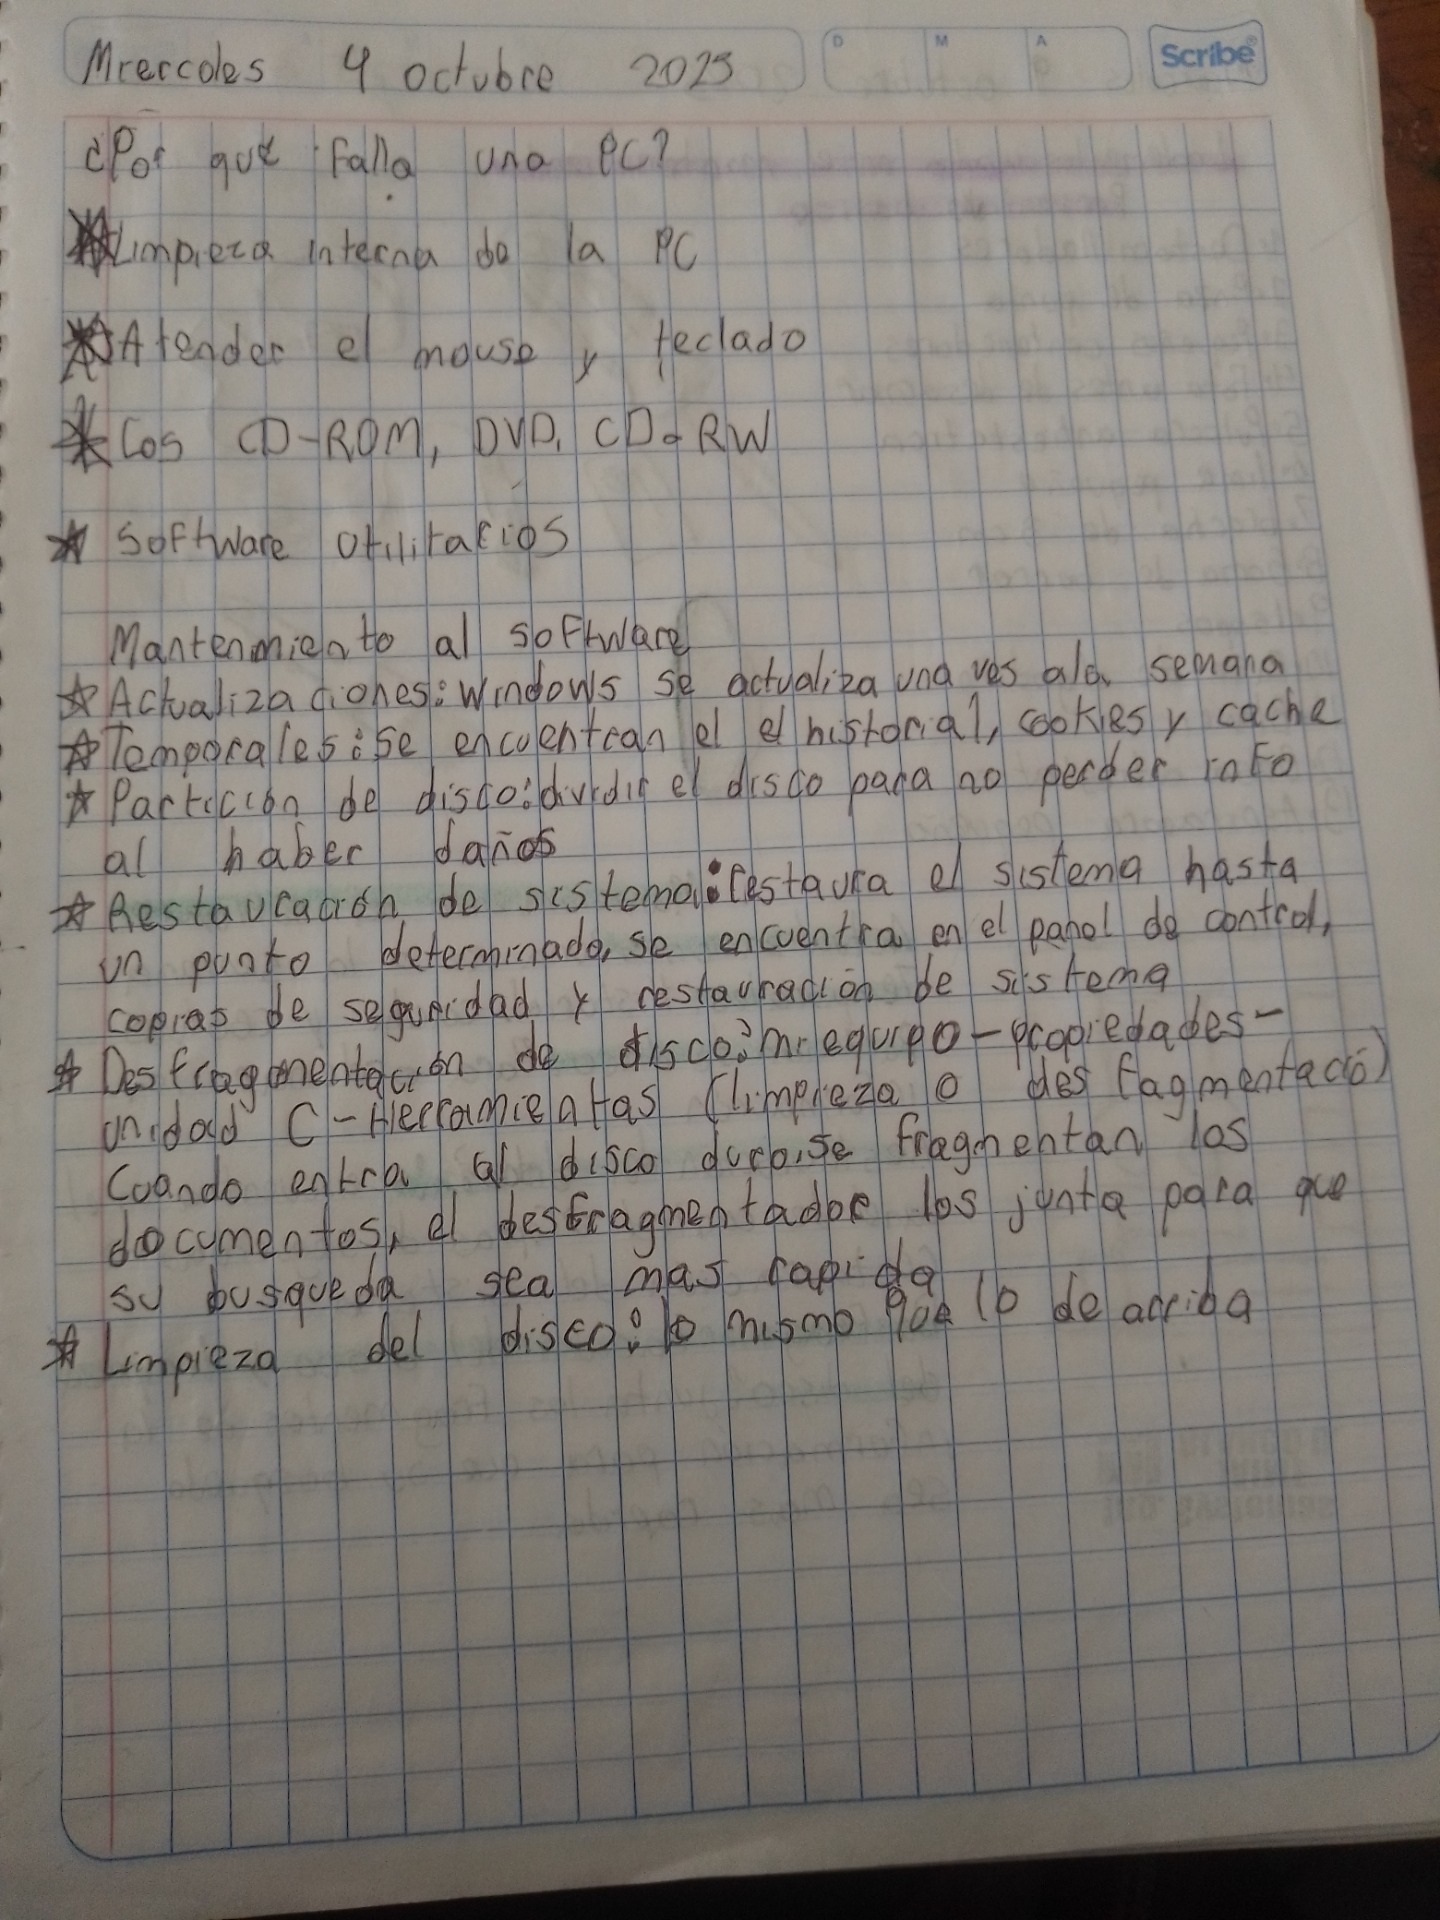 Mrercoles 4 octubre 2023
D M A
Scribe
¿Por qué falla una PC?
Limpieza interna de la PC
Atender el mouse y teclado
Los CD-ROM, DVD, CD-RW
Software Utilitarios
Mantenmiento al software
Actualizaciones: Windows se actualiza una ves ala semana
Temporales: Se encuentran el el historial, cookies y cache
Particion de disco: dividir el disco para no perder info
al haber daños
Restauración de sistema: restaura el sistema hasta
un punto determinado, se encuentra en el panel de control,
copias de seguridad y restauración de sistema
Desfragmentación de disco: mi equipo - propiedades -
unidad C - Herramientas (limpieza o desfagmentació)
Cuando entra al disco duro, se fragmentan los
documentos, el desfragmentador los junta para que
su busqueda sea mas rapida
Limpieza del disco: lo mismo que lo de arriba